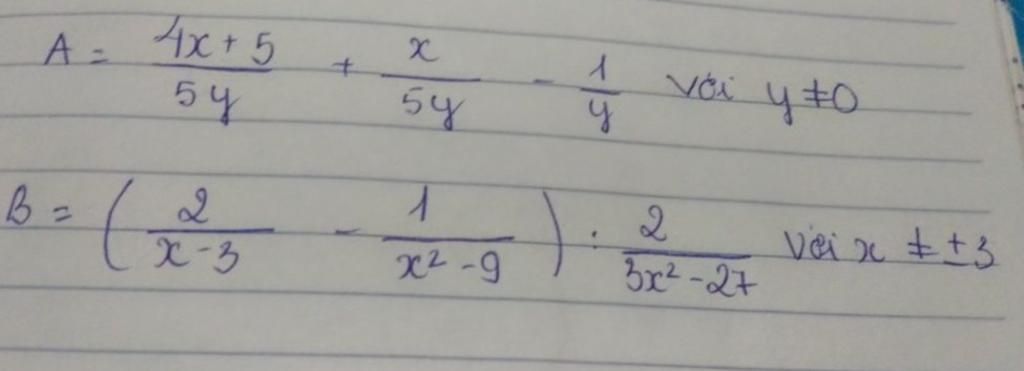 A = \frac{4x+5}{5y} + \frac{x}{5y} - \frac{1}{y} với y ≠ 0
B = \left( \frac{2}{x-3} - \frac{1}{x^2-9} \right) : \frac{2}{3x^2-27} với x ≠ ±3